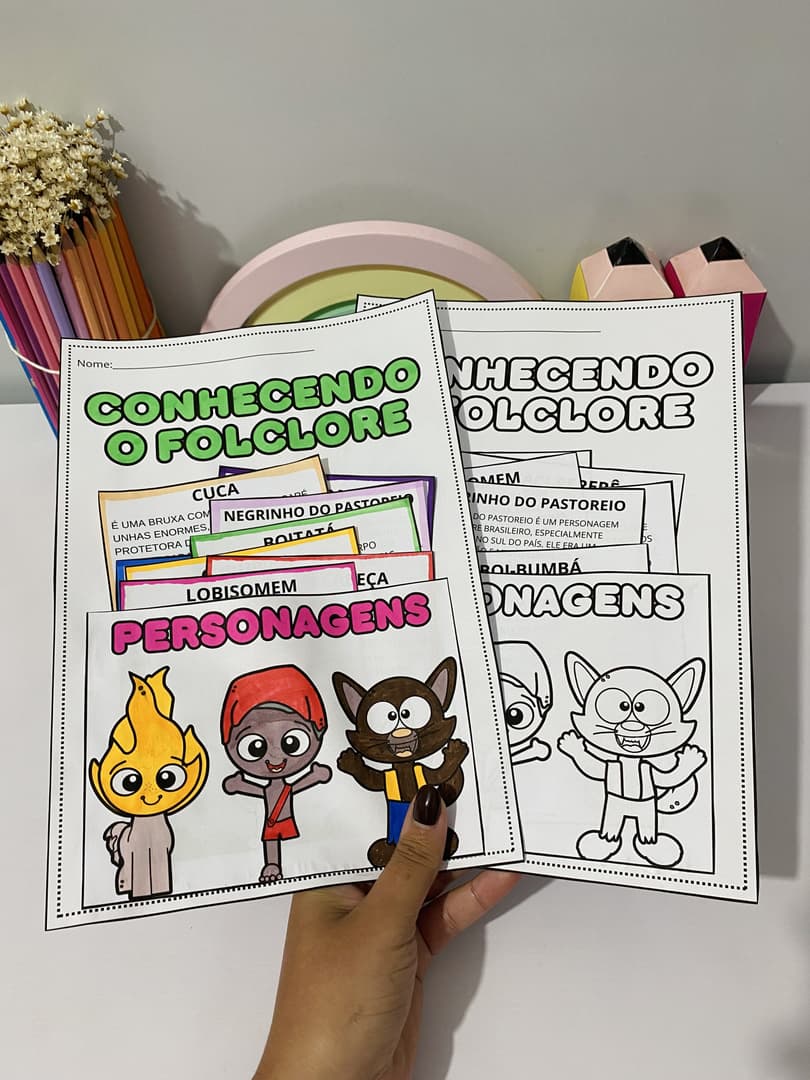 Nome:
CONHECENDO
O FOLCLORE
CUCA
É UMA BRUXA COM
UNHAS ENORMES,
PROTETORA
NEGRINHO DO PASTOREIO
BOITATÁ
LOBISOMEM
PERSONAGENS
NHECENDO
FOLCLORE
OMEM
RINHO DO PASTOREIO
DO PASTOREIO É UM PERSONAGEM
RE BRASILEIRO, ESPECIALMENTE
NO SUL DO PAÍS, ELE ERA UM
BOI-BUMBÁ
ONAGENS